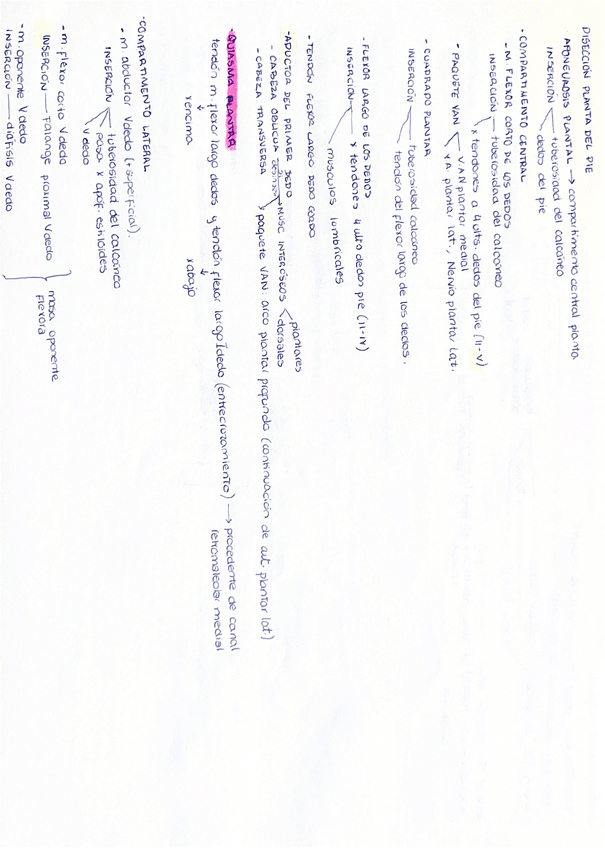 DISECCIÓN PLANTA DEL PIE
APONEUROSIS PLANTAL → compartimento central planta
INSERCIÓN tuberosidad del calcáneo
dedos del pie
- COMPARTIMENTO CENTRAL
- M. FLEXOR CORTO DE LOS DEDOS
INSERCIÓN tuberosidad del calcáneo
x tendones a 4 ults. dedos del pie (II-V)
- PAQUETE VAN V.A.N plantar medial
V.A. plantar lat., Nervio plantar lat.
- CUADRADO PLANTAR
INSERCIÓN Tuberosidad calcáneo
tendón del flexor largo de los dedos.
- FLEXOR LARGO DE LOS DEDOS
INSERCIÓN x tendones 4 ult dedos pie (II-IV)
músculos lumbricales
- TENDÓN FLEXOR LARGO DEDO GORDO
- ADUCTOR DEL PRIMER DEDO plantares
- CABEZA OBLICUA MUSC INTERÓSEOS dorsales
- CABEZA TRANSVERSA x paquete VAN arco plantar profundo (continuación de art. plantar lat.)
- QUIASMA PLANTAR
tendón m. flexor largo dedos y tendón flexor largo I dedo (entrecruzamiento) → procedente de canal
retromaleolar medial
x encima x abajo
- COMPARTIMENTO LATERAL
- m. abductor V dedo (+ superficial).
INSERCIÓN tuberosidad del calcáneo
pasa x apóf. estiloides
V dedo
- m. flexor corto V dedo
INSERCIÓN Falange proximal V dedo
masa oponente
flexora
- m. oponente V dedo
INSERCIÓN diáfisis V dedo